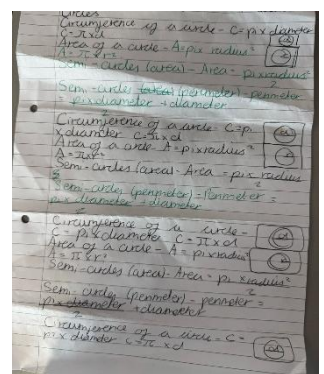 Circles
Circumference of a circle - C = pi x diameter
C = π x d
Area of a circle - A = pi x radius²
A = π x r²
Semi-circles (area) - Area = pi x radius²
2
Semi-circles (perimeter) - perimeter
= pi x diameter + diameter
2
Circumference of a circle - C = pi
x diameter C = π x d
Area of a circle - A = pi x radius²
A = π x r²
Semi-circles (area) - Area = pi x radius
2
Semi-circles (perimeter) - Perimeter =
pi x diameter + diameter
2
Circumference of a circle -
C = pi x diameter C = π x d
Area of a circle - A = pi x radius²
A = π x r²
Semi-circles (area) - Area = pi x radius²
2
Semi-circles (perimeter) - perimeter =
pi x diameter + diameter
2
Circumference of a circle - C =
pi x diameter C = π x d